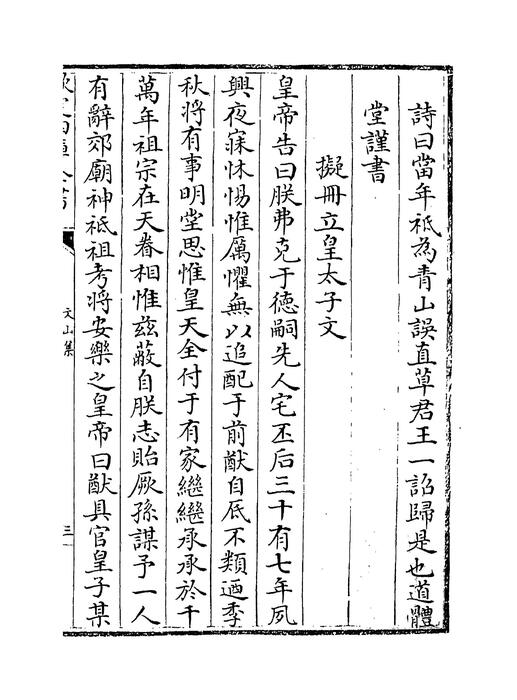 詩曰當年祗為青山誤直草君王一詔歸是也道體
堂謹書
擬冊立皇太子文
皇帝告曰朕弗克于德嗣先人宅丕后三十有七年夙
興夜寐怵惕惟厲懼無以追配于前猷自厎不類迺季
秋將有事明堂思惟皇天全付于有家繼繼承承於千
萬年祖宗在天眷相惟兹蔽自朕志貽厥孫謀予一人
有辭郊廟神祗祖考將安樂之皇帝曰猷具官皇子某
文山集
三